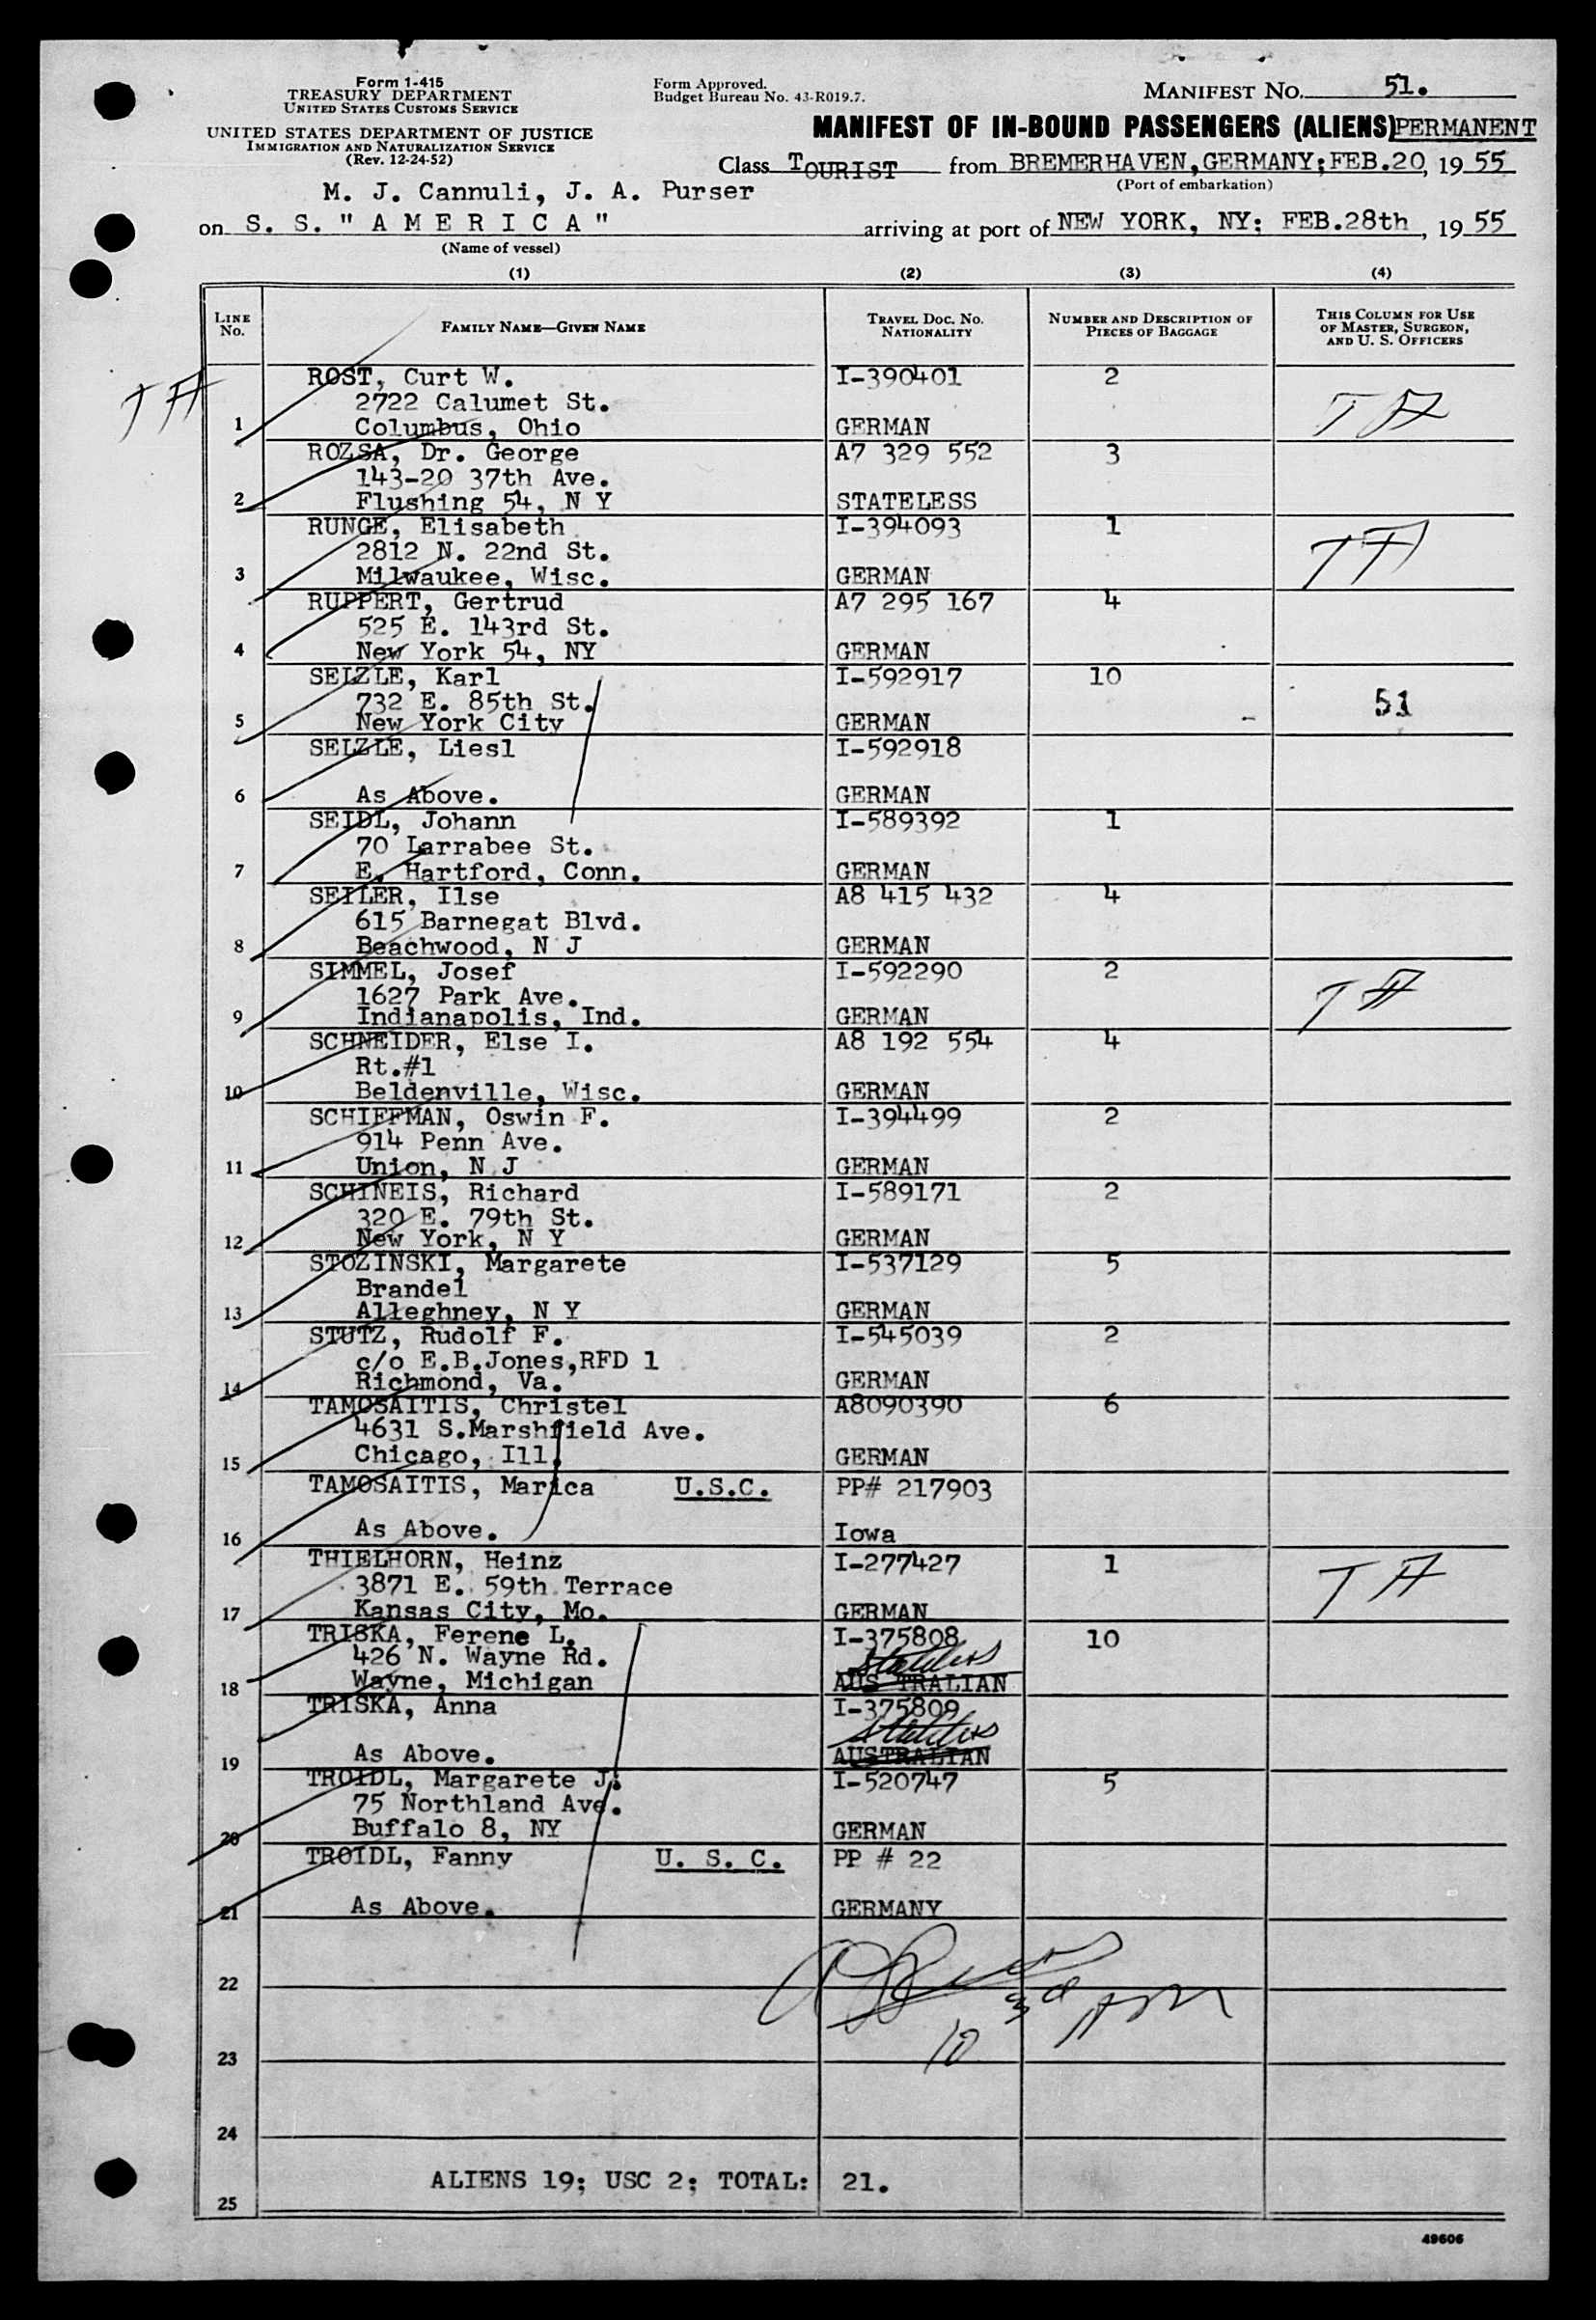 Form 1-415
TREASURY DEPARTMENT
UNITED STATES CUSTOMS SERVICE
UNITED STATES DEPARTMENT OF JUSTICE
IMMIGRATION AND NATURALIZATION SERVICE
(Rev. 12-24-52)
Form Approved.
Budget Bureau No. 43-R019.7.
MANIFEST NO. 51.
MANIFEST OF IN-BOUND PASSENGERS (ALIENS) PERMANENT
Class TOURIST from BREMERHAVEN, GERMANY; FEB.20, 1955
(Port of embarkation)
M. J. Cannuli, J. A. Purser
on S. S. " A M E R I C A " arriving at port of NEW YORK, NY; FEB.28th, 1955
(Name of vessel)
(1) (2) (3) (4)
LINE No. FAMILY NAME—GIVEN NAME TRAVEL DOC. NO. NATIONALITY NUMBER AND DESCRIPTION OF PIECES OF BAGGAGE THIS COLUMN FOR USE OF MASTER, SURGEON, AND U. S. OFFICERS
ROST, Curt W. I-390401 2
2722 Calumet St.
1 Columbus, Ohio GERMAN
ROZSA, Dr. George A7 329 552 3
143-20 37th Ave.
2 Flushing 54, N Y STATELESS
RUNGE, Elisabeth I-394093 1
2812 N. 22nd St.
3 Milwaukee, Wisc. GERMAN
RUPPERT, Gertrud A7 295 167 4
525 E. 143rd St.
4 New York 54, NY GERMAN
SEIZLE, Karl I-592917 10
732 E. 85th St. 51
5 New York City GERMAN
SEIZLE, Liesl I-592918
6 As Above. GERMAN
SEIDL, Johann I-589392 1
70 Larrabee St.
7 E. Hartford, Conn. GERMAN
SEILER, Ilse A8 415 432 4
615 Barnegat Blvd.
8 Beachwood, N J GERMAN
SIMMEL, Josef I-592290 2
1627 Park Ave.
9 Indianapolis, Ind. GERMAN
SCHNEIDER, Else I. A8 192 554 4
Rt.#1
10 Beldenville, Wisc. GERMAN
SCHIFFMAN, Oswin F. I-394499 2
914 Penn Ave.
11 Union, N J GERMAN
SCHINEIS, Richard I-589171 2
320 E. 79th St.
12 New York, N Y GERMAN
STOZINSKI, Margarete I-537129 5
Brandel
13 Alleghney, N Y GERMAN
STUTZ, Rudolf F. I-545039 2
c/o E.B.Jones,RFD 1
14 Richmond, Va. GERMAN
TAMOSAITIS, Christel A8090390 6
4631 S.Marshfield Ave.
15 Chicago, Ill. GERMAN
TAMOSAITIS, Marica U.S.C. PP# 217903
16 As Above. Iowa
THIELHORN, Heinz I-277427 1
3871 E. 59th Terrace
17 Kansas City, Mo. GERMAN
TRISKA, Ferene L. I-375808 10
426 N. Wayne Rd. Stateless
18 Wayne, Michigan AUS TRALIAN
TRISKA, Anna I-375809
Stateless
19 As Above. AUSTRALIAN
TROIDL, Margarete J. I-520747 5
75 Northland Ave.
20 Buffalo 8, NY GERMAN
TROIDL, Fanny U. S. C. PP # 22
21 As Above. GERMANY
22
23
24
ALIENS 19; USC 2; TOTAL: 21.
25
49606